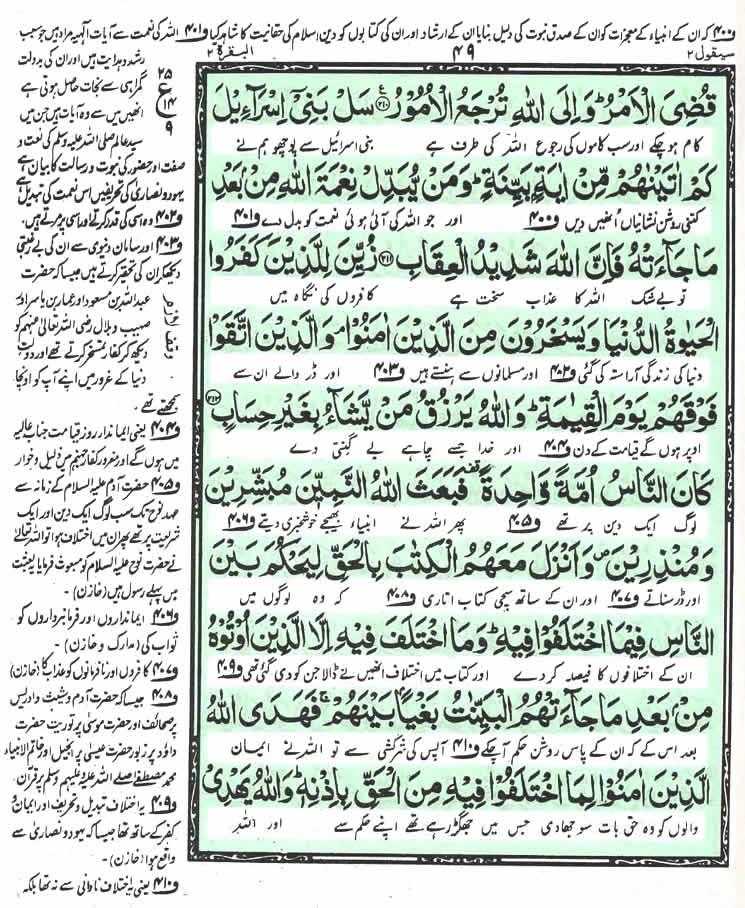 ف۴۰۰ کہ ان کے انبیاء کے معجزات کو ان کے صدق نبوت کی دلیل بنایا ان کے ارشاد اور ان کی کتابوں کو دین اسلام کی حقانیت کا شاہد کیا ف۴۰۱ اللہ کی نعمت سے آیات الٰہیہ مراد ہیں جو سبب
سیقول ۲
۴۹
البقرۃ ۲
قُضِىَ الْاَمْرُ ؕ وَاِلَى اللّٰهِ تُرْجَعُ الْاُمُوْرُ ﴿۲۱۰﴾ سَلْ بَنِىْۤ اِسْرَآءِيْلَ
کام ہوچکے اور سب کاموں کی رجوع اللہ کی طرف ہے بنی اسرائیل سے پوچھو ہم نے
كَمْ اٰتَيْنٰهُمْ مِّنْ اٰيَةٍۢ بَيِّنَةٍ ؕ وَمَنْ يُّبَدِّلْ نِعْمَةَ اللّٰهِ مِنْۢ بَعْدِ
کتنی روشن نشانیاں انھیں دیں ف۴۰۰ اور جو اللہ کی آئی ہوئی نعمت کو بدل دے ف۴۰۱
مَا جَآءَتْهُ فَاِنَّ اللّٰهَ شَدِيْدُ الْعِقَابِ ﴿۲۱۱﴾ زُيِّنَ لِلَّذِيْنَ كَفَرُوا
تو بے شک اللہ کا عذاب سخت ہے کافروں کی نگاہ میں
الْحَيٰوةُ الدُّنْيَا وَيَسْخَرُوْنَ مِنَ الَّذِيْنَ اٰمَنُوْا ۘ وَالَّذِيْنَ اتَّقَوْا
دنیا کی زندگی آراستہ کی گئی ف۴۰۲ اور مسلمانوں سے ہنستے ہیں ف۴۰۳ اور ڈر والے ان سے
فَوْقَهُمْ يَوْمَ الْقِيٰمَةِ ؕ وَاللّٰهُ يَرْزُقُ مَنْ يَّشَآءُ بِغَيْرِ حِسَابٍ ﴿۲۱۲﴾
اوپر ہوں گے قیامت کے دن ف۴۰۴ اور خدا جسے چاہے بے گنتی دے
كَانَ النَّاسُ اُمَّةً وَّاحِدَةً ۫ فَبَعَثَ اللّٰهُ النَّبِيّٖنَ مُبَشِّرِيْنَ
لوگ ایک دین پر تھے ف۴۰۵ پھر اللہ نے انبیاء بھیجے خوشخبری دیتے ف۴۰۶
وَمُنْذِرِيْنَ ۪ وَاَنْزَلَ مَعَهُمُ الْكِتٰبَ بِالْحَقِّ لِيَحْكُمَ بَيْنَ
اور ڈر سناتے ف۴۰۷ اور ان کے ساتھ سچی کتاب اتاری ف۴۰۸ کہ وہ لوگوں میں
النَّاسِ فِيْمَا اخْتَلَفُوْا فِيْهِ ؕ وَمَا اخْتَلَفَ فِيْهِ اِلَّا الَّذِيْنَ اُوْتُوْهُ
ان کے اختلافوں کا فیصلہ کردے اور کتاب میں اختلاف انھیں نے ڈالا جن کو دی گئی تھی ف۴۰۹
مِنْۢ بَعْدِ مَا جَآءَتْهُمُ الْبَيِّنٰتُ بَغْيًۢا بَيْنَهُمْ ۚ فَهَدَى اللّٰهُ
بعد اس کے کہ ان کے پاس روشن حکم آچکے ف۴۱۰ آپس کی سرکشی سے تو اللہ نے ایمان
الَّذِيْنَ اٰمَنُوْا لِمَا اخْتَلَفُوْا فِيْهِ مِنَ الْحَقِّ بِاِذْنِهٖ ؕ وَاللّٰهُ يَهْدِىْ
والوں کو وہ حق بات سوجھا دی جس میں جھگڑ رہے تھے اپنے حکم سے اور اللہ
رشد و ہدایت ہیں اور ان کی بدولت
گمراہی سے نجات حاصل ہوتی ہے
انھیں میں سے وہ آیات ہیں جن میں
سید عالم صلی اللہ علیہ وسلم کی نعت و
صفت اور حضور کی نبوت و رسالت کا بیان ہے
یہود و نصاریٰ کی تحریفیں اس نعمت کی تبدیل ہے
ف۴۰۲ وہ اسی کی قدر کرتے اور اسی پر مرتے ہیں۔
ف۴۰۳ اور سامان دنیوی سے ان کی بے رغبتی
دیکھ کر ان کی تحقیر کرتے ہیں جیسا کہ حضرت
عبداللہ بن مسعود اور عمار بن یاسر اور
صہیب و بلال رضی اللہ تعالیٰ عنہم کو
دیکھ کر کفار تمسخر کرتے تھے اور دولت
دنیا کے غرور میں اپنے آپ کو اونچا
سمجھتے تھے۔
ف۴۰۴ یعنی ایماندار روز قیامت جنات عالیہ
میں ہوں گے اور مغرور کفار جہنم میں ذلیل و خوار
ف۴۰۵ حضرت آدم علیہ السلام کے زمانہ سے
عہد نوح تک سب لوگ ایک دین اور ایک
شریعت پر تھے پھر ان میں اختلاف ہوا تو اللہ تعالیٰ
نے حضرت نوح علیہ السلام کو مبعوث فرمایا یہ بعثت
میں پہلے رسول ہیں (خازن)۔
ف۴۰۶ ایمانداروں اور فرمانبرداروں کو
ثواب کی (مدارک و خازن)۔
ف۴۰۷ کافروں اور نافرمانوں کو عذاب کا (خازن)
ف۴۰۸ جیسا کہ حضرت آدم و شیث و ادریس
پر صحائف اور حضرت موسیٰ پر توریت حضرت
داؤد پر زبور حضرت عیسیٰ پر انجیل اور خاتم الانبیاء
محمد مصطفےٰ صلے اللہ علیہ وعلیہم وسلم پر قرآن۔
ف۴۰۹ یہ اختلاف تبدیل و تحریف اور ایمان و
کفر کے ساتھ تھا جیسا کہ یہود و نصاریٰ سے
واقع ہوا (خازن)۔
ف۴۱۰ یعنی یہ اختلاف نادانی سے نہ تھا بلکہ
۲۵
ع
۱۴
۹
وقف لازم